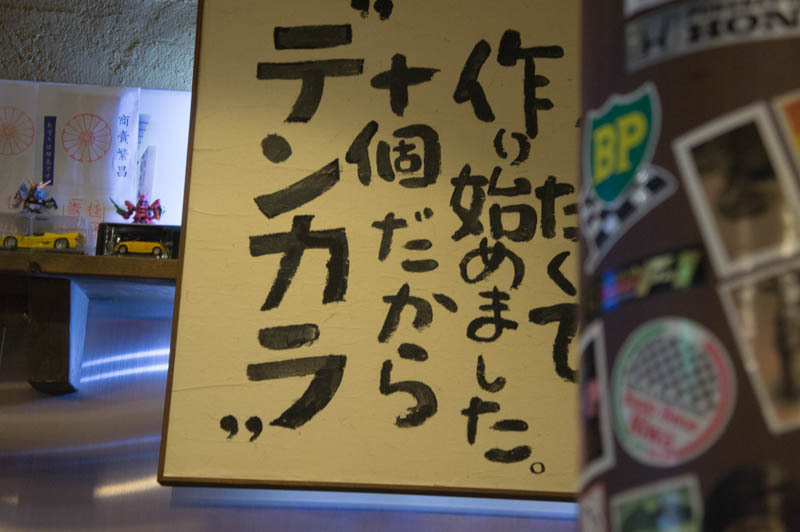 たくて
作り始めました。
十個だから
"デンカラ"
商売繁昌
BP
HON